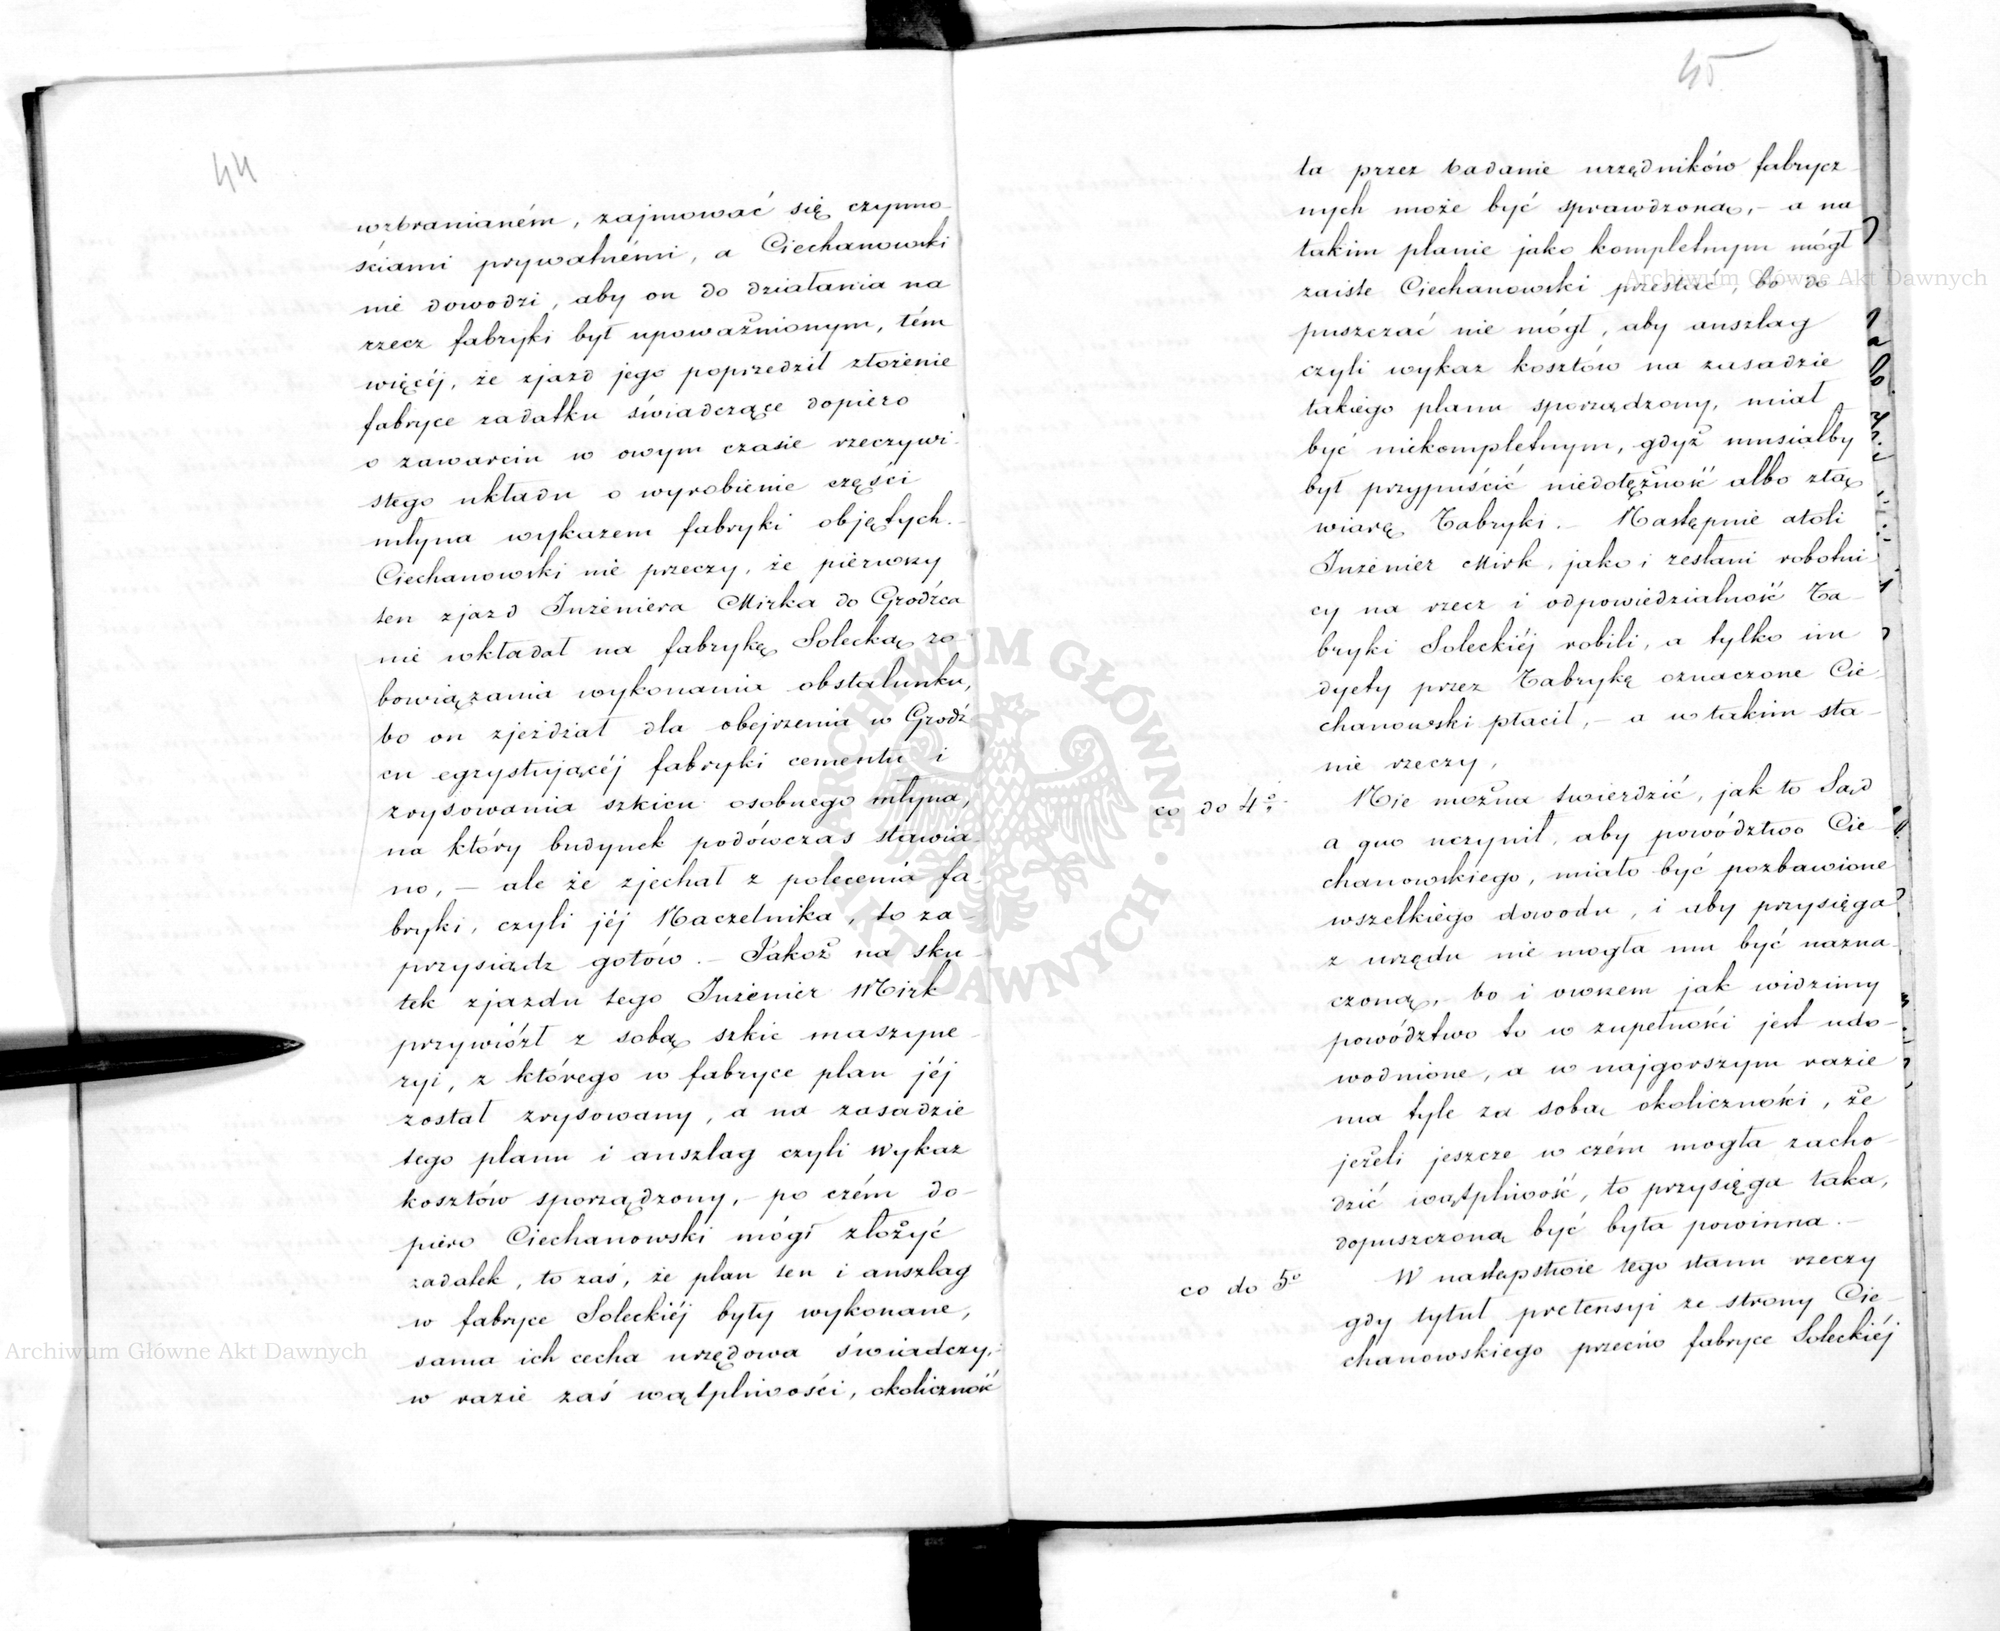 44
wzbranianém, zajmować się czynno-
ściami prywatnémi, a Ciechanowski
nie dowodzi, aby on do działania na
rzecz fabryki był upoważnionym, tém
więcéj, że zjazd jego poprzedził złożenie
fabryce zadatku świadczące dopiero
o zawarciu w owym czasie rzeczywi-
stego układu o wyrobienie części
młyna wykazem fabryki objętych.-
Ciechanowski nie przeczy, że pierwszy
ten zjazd Inżeniera Mirka do Grodźca
nie wkładał na fabrykę Solecką zo
bowiązania wykonania obstalunku,
bo on zjeżdżał dla obejrzenia w Grodź
cu egzystującéj fabryki cementu i
zrysowania szkicu osobnego młyna,
na który budynek podówczas stawia-
no, - ale że zjechał z polecenia fa-
bryki, czyli jéj Naczelnika, to za-
przysiądz gotów. - Jakoż na sku-
tek zjazdu tego Inżenier Mirk
przywiózł z sobą szkic maszyne-
ryi, z którego w fabryce plan jéj
został zrysowany, a na zasadzie
tego planu i anszlag czyli wykaz
kosztów sporządzony, - po czém do-
piero Ciechanowski mógł złożyć
zadatek, to zaś, że plan ten i anszlag
w fabryce Soleckiéj były wykonane,
sama ich cecha urzędowa świadczy,-
w razie zaś wątpliwości, okoliczność
45
ta przez badanie urzędników fabrycz-
nych może być sprawdzoną, - a na
takim planie jako kompletnym mógł
zaiste Ciechanowski przestać, bo do
puszczać nie mógł, aby anszlag
czyli wykaz kosztów na zasadzie
takiego planu sporządzony, miał
być niekompletnym, gdyż musiałby
był przypuścić niedołężność albo złą
wiarę Fabryki. - Następnie atoli
Inżenier Mirk, jako i zesłani robotni
cy na rzecz i odpowiedzialność Fa-
bryki Soleckiéj robili, a tylko im
dyety przez Fabrykę oznaczone Cie-
chanowski płacił, - a w takim sta-
nie rzeczy,
co do 4º Nie można twierdzić, jak to Sąd
a quo uczynił, aby powództwo Cie-
chanowskiego, miało być pozbawione
wszelkiego dowodu, i aby przysięga
z urzędu nie mogła mu być nazna-
czoną, - bo i owszem jak widzimy
powództwo to w zupełności jest udo-
wodnione, a w najgorszym razie
ma tyle za sobą okoliczności, że
jeżeli jeszcze w czém mogła zacho-
dzić wątpliwość, to przysięga taka,
dopuszczoną być była powinna. -
co do 5º W następstwie tego stanu rzeczy
gdy tytuł pretensyi ze strony Cie-
chanowskiego przeciw fabryce Soleckiéj
Archiwum Główne Akt Dawnych
Archiwum Główne Akt Dawnych
ARCHIWUM GŁÓWNE AKT DAWNYCH